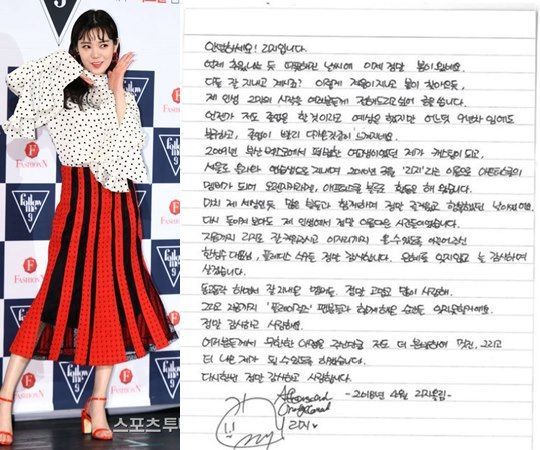 FASHIONN
follow me 9
FASHIONN
follow me 9
스포츠투
안녕하세요! 리지입니다.
언제 추웠냐는 듯 따뜻해진 날씨에 이제 정말 봄이 왔네요.
다들 잘 지내고 계시죠? 이렇게 겨울이 지나고 봄이 찾아오듯,
제 인생 2막의 시작을 여러분들께 전해드리고 싶어 글을 씁니다.
언젠가 저도 졸업을 할 것이라고 예상은 했지만 어느덧 9년차 임에도
불구하고, 졸업이 빨리 다가온것같이 느껴져요.
2009년 부산 평범한 여고생이었던 제가 캐스팅이 되고,
서울로 올라와 연습생으로 지내며 2010년 '리지'라는 이름으로 애프터스쿨의
멤버가 되어 오렌지캬라멜, 애프터스쿨 블루로 활동을 해 왔습니다.
마치 제 세상인듯, 많은 분들과 함께하며 정말 즐겁고 행복했던 나날이었어요.
다시 돌이켜 보아도 제 인생에서 정말 아름다운 시간들이었습니다.
지금까지 리지로 이자리까지 올 수 있도록 이끌어주신
한성수 대표님, 플레디스 식구들 정말 감사합니다. 은혜를 잊지않고 늘 감사하며
살겠습니다.
동고동락 하면서 잘 지내온 멤버들, 정말 고맙고 많이 사랑해.
그리고 지금까지 '플레이걸즈' 팬분들과 함께해온 순간들 잊지못할거에요.
정말 감사하고 사랑해요.
여러분들께서 무한한 애정을 주신만큼 저도 더 멋진, 그리고
더 나은 제가 될 수있도록 하겠습니다.
다시한번 정말 감사하고 사랑합니다.
-2018년 4월 리지올림-
Afterschool
Orangecaramel
리지♥